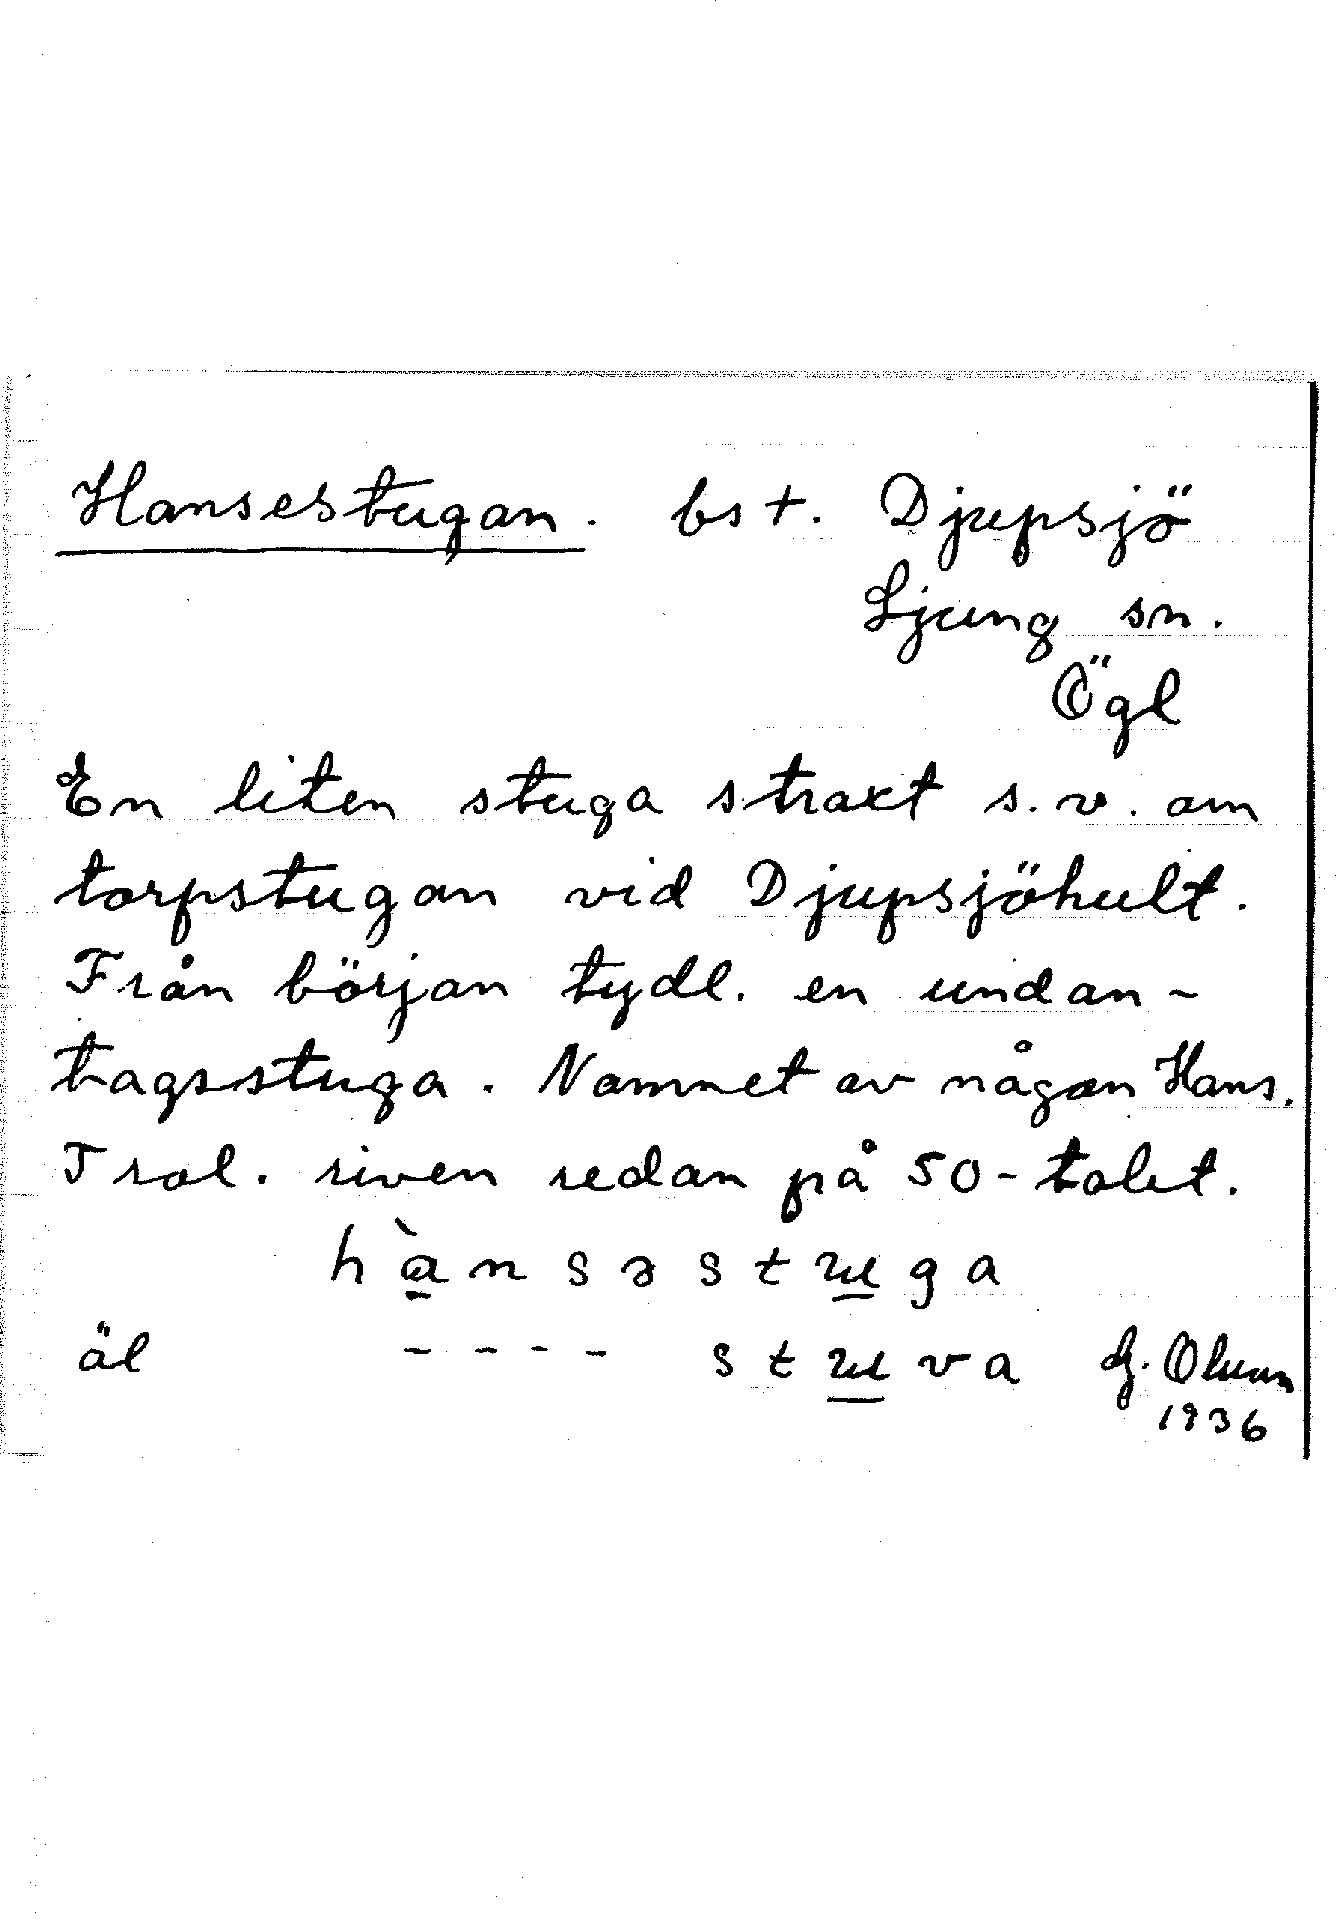 Hansestugan. bst. Djupsjö
Ljung sn.
Ögl
En liten stuga straxt s.v. om
torpstugan vid Djupsjöhult.
Från början tydl. en undan-
tagsstuga. Namnet av någon Hans.
Trol. riven redan på 50-talet.
hànsəstɯga
äl - - - - stɯva G. Olson
1936